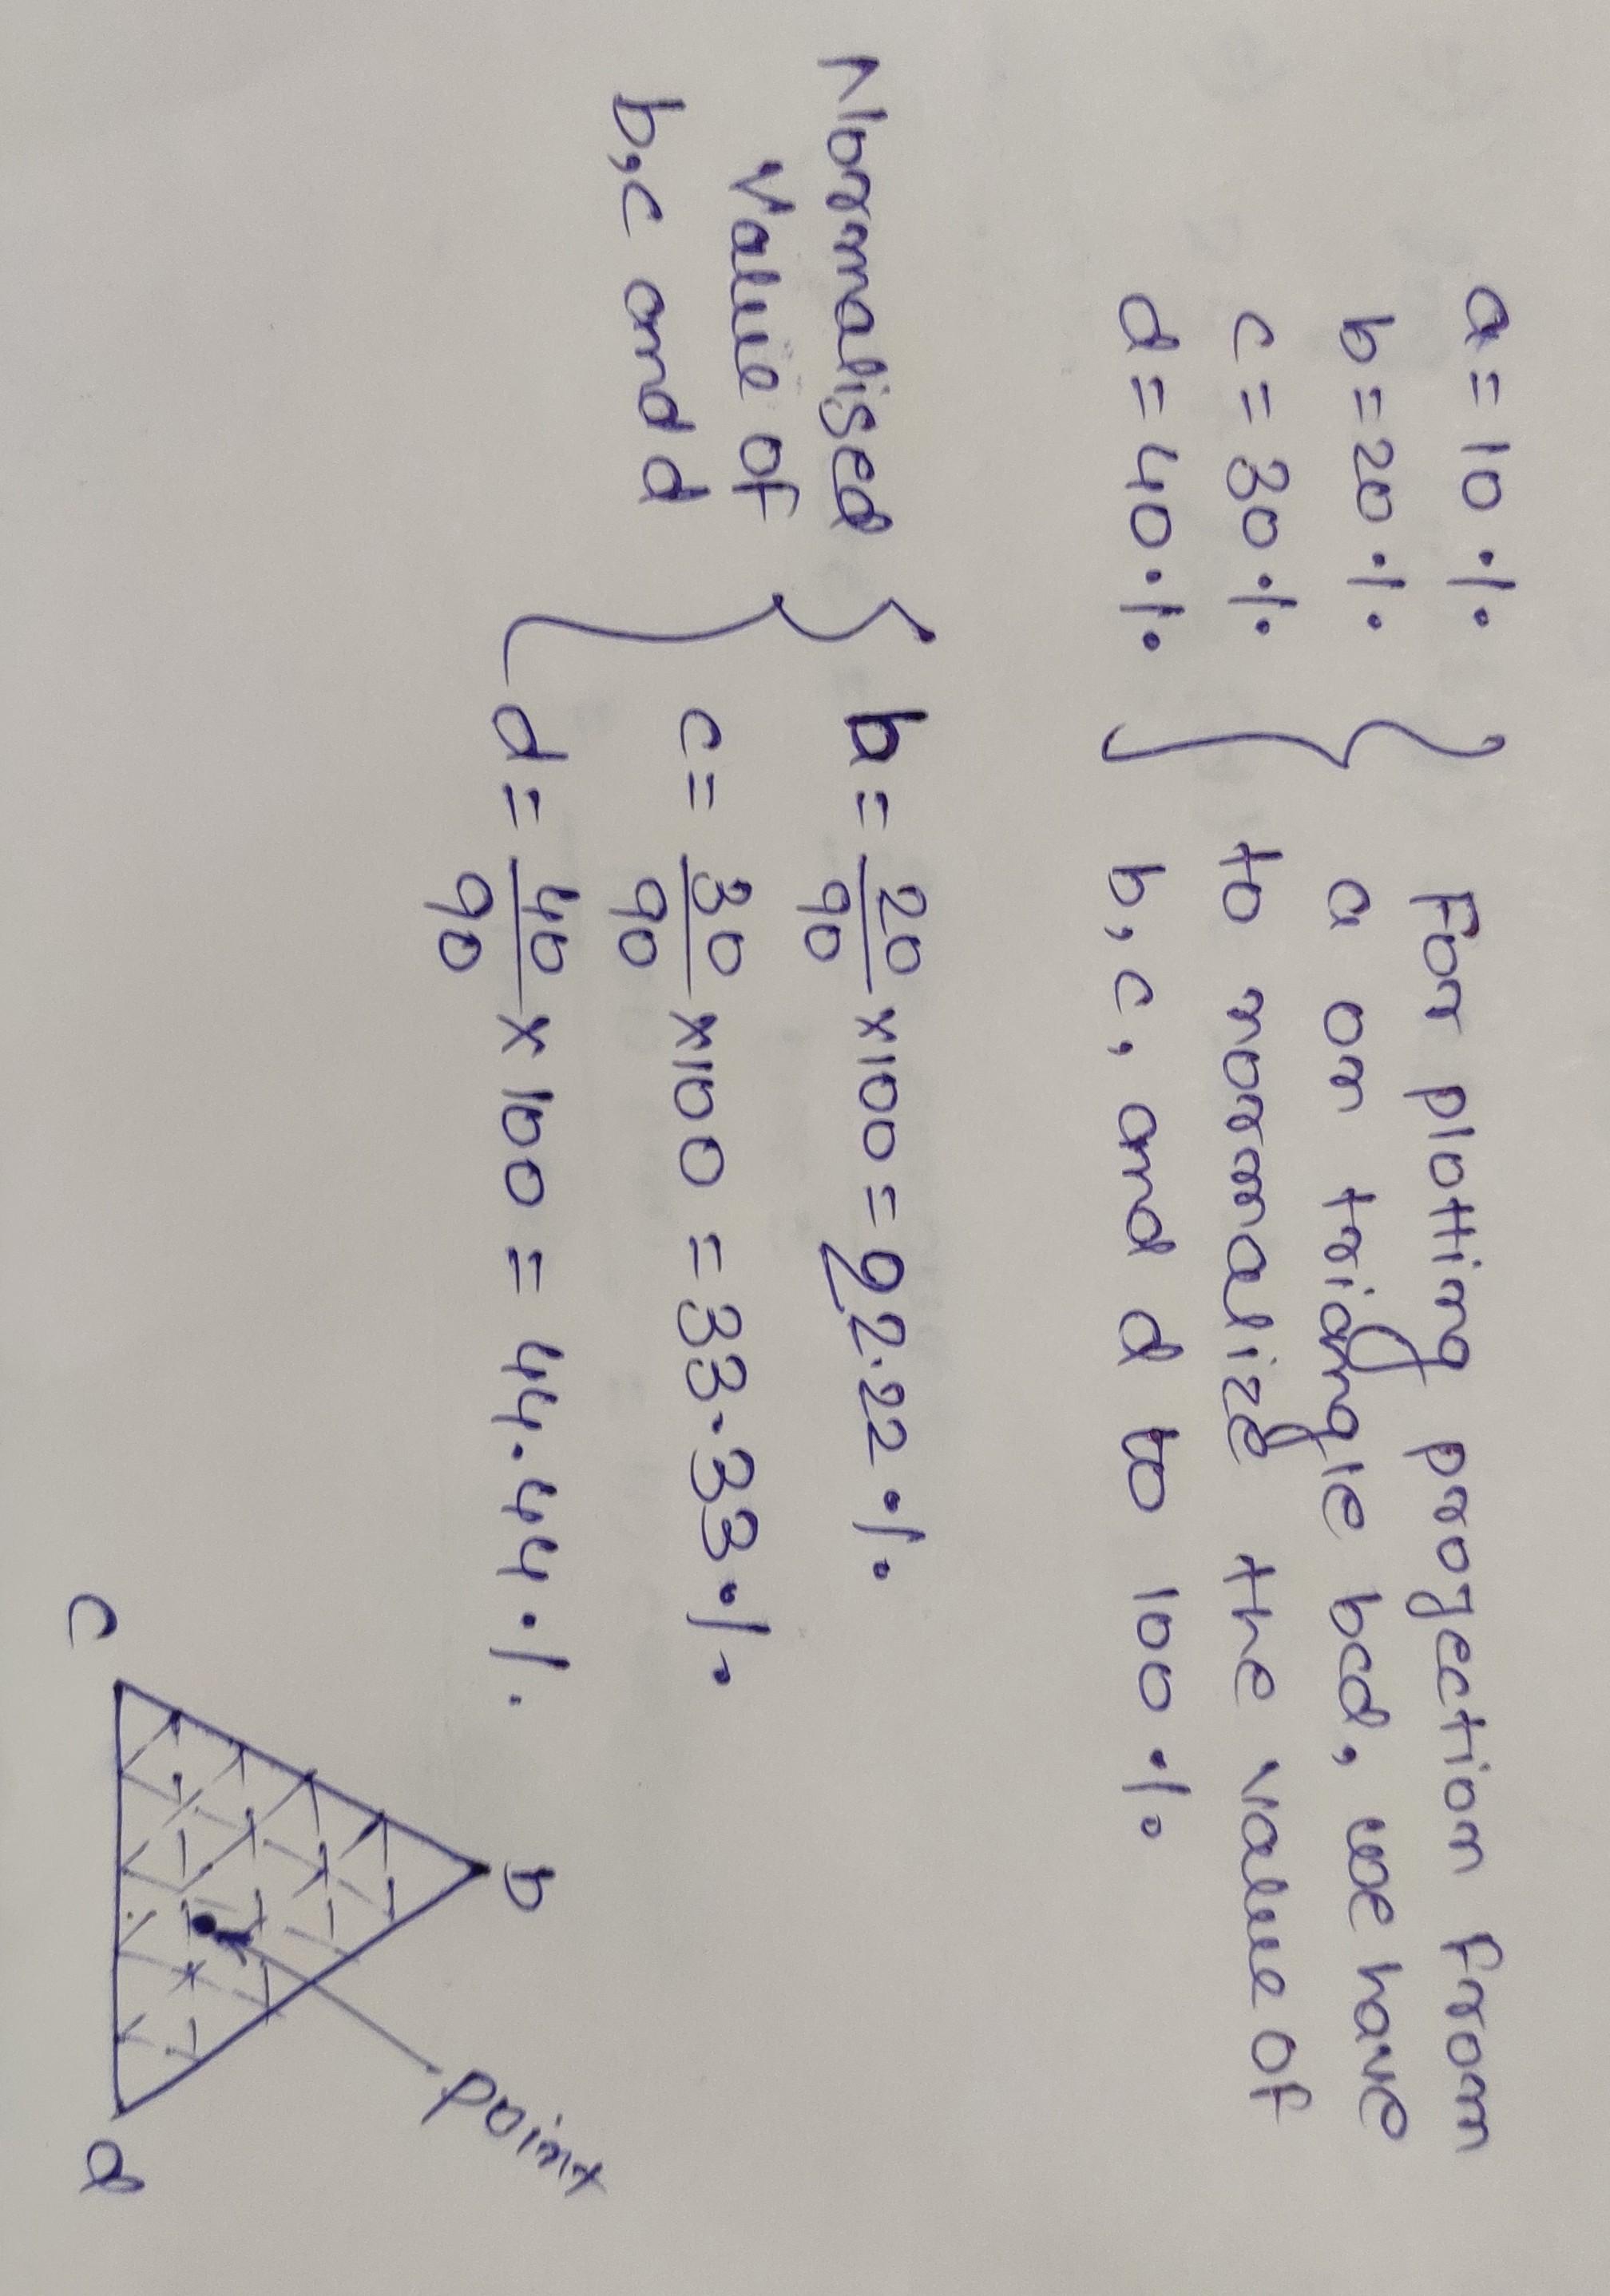 a = 10 %
b = 20 %
c = 30 %
d = 40 %
For plotting projection from
a on triangle bcd, we have
to normalize the value of
b, c, and d to 100 %
Normalised
value of
b, c and d
b = 20/90 x 100 = 22.22 %
c = 30/90 x 100 = 33.33 %
d = 40/90 x 100 = 44.44 %
b
c
d
Point